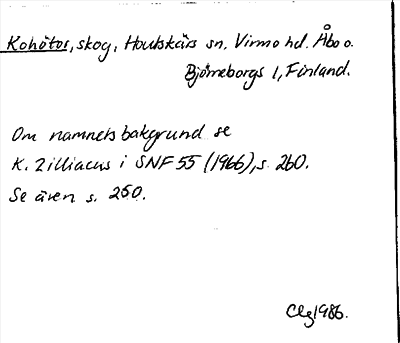 Kohötos, skog, Houtskärs sn. Virmo hd. Åbo o.
Björneborgs l, Finland.
Om namnets bakgrund se
K. Zilliacus i SNF 55 (1966), s. 260.
Se även s. 250.
Clg 1986.